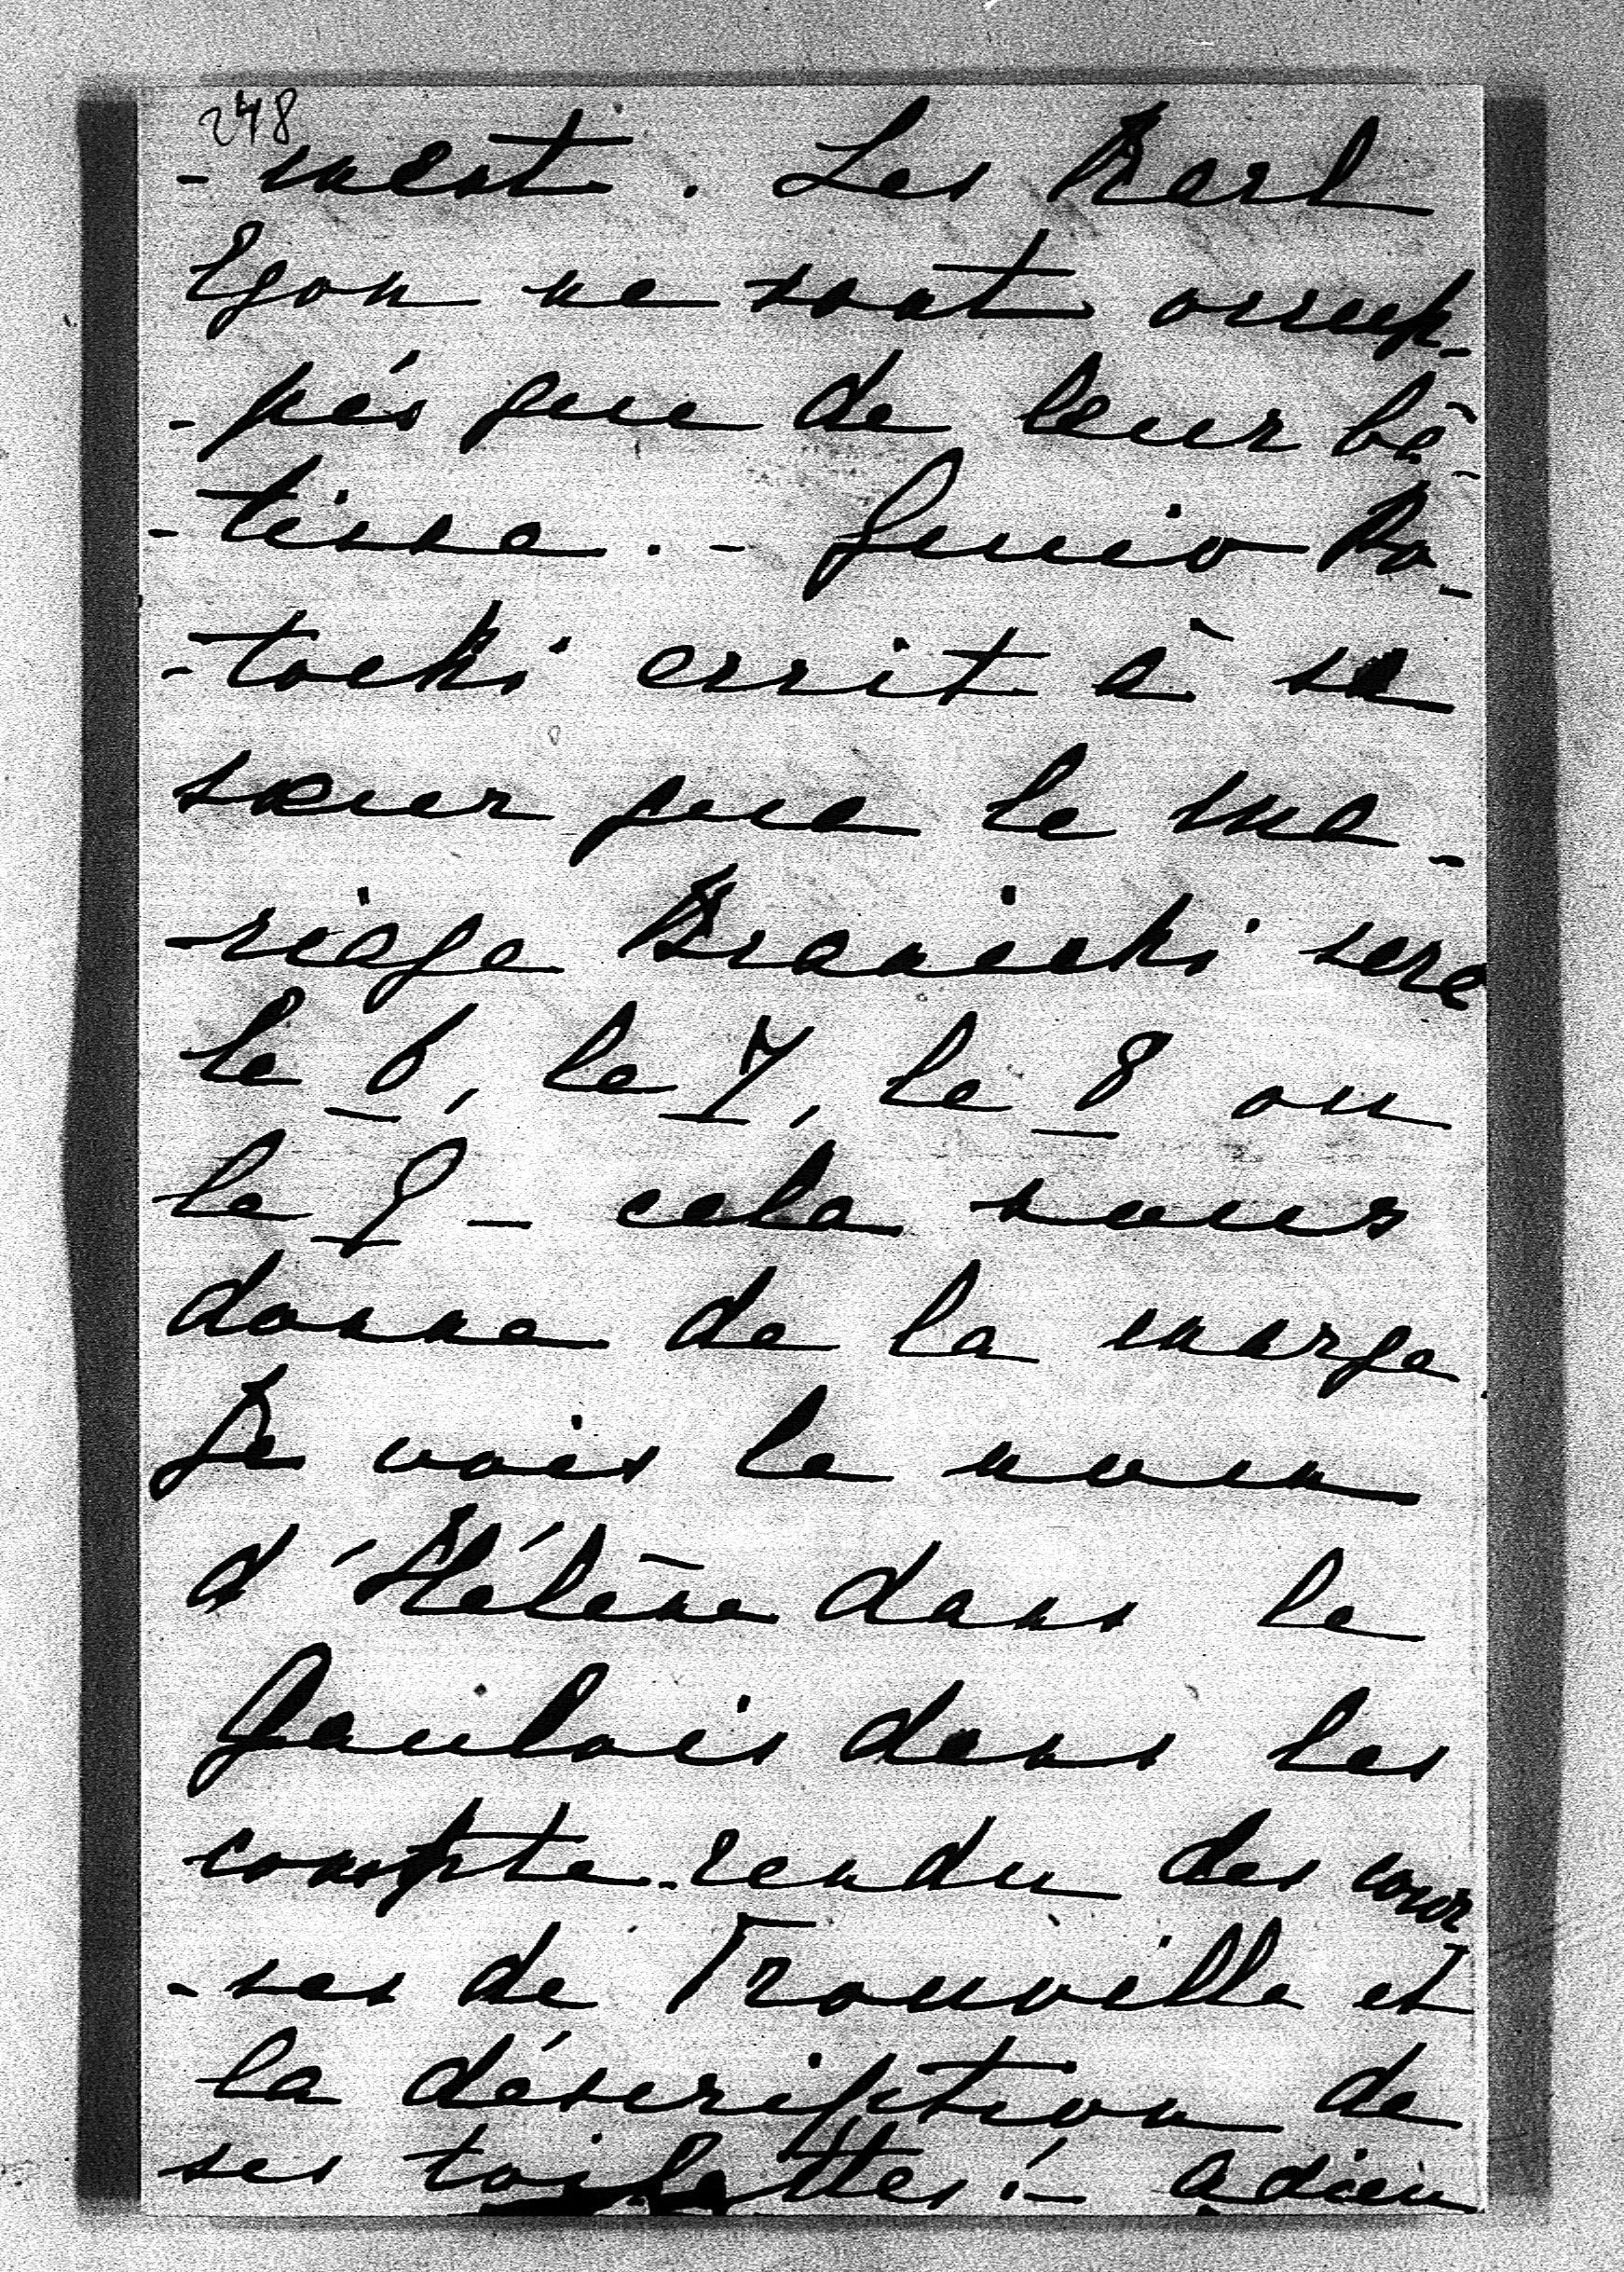 248
-ment. Les Karl
Egon ne sont occup-
-pés que de leur bâ-
-tisse. - Gucio Po-
-tocki ecrit à sa
sœur que le ma-
-riage Branicki sera
le 6, le 7, le 8 ou
le 9 - cela nous
donne de la marge.
Je vois le nom
d'Hélène dans le
Gaulois dans les
compte-rendu des cour
-ses de Trouville et
la déscription de
ses toilettes! - adieu